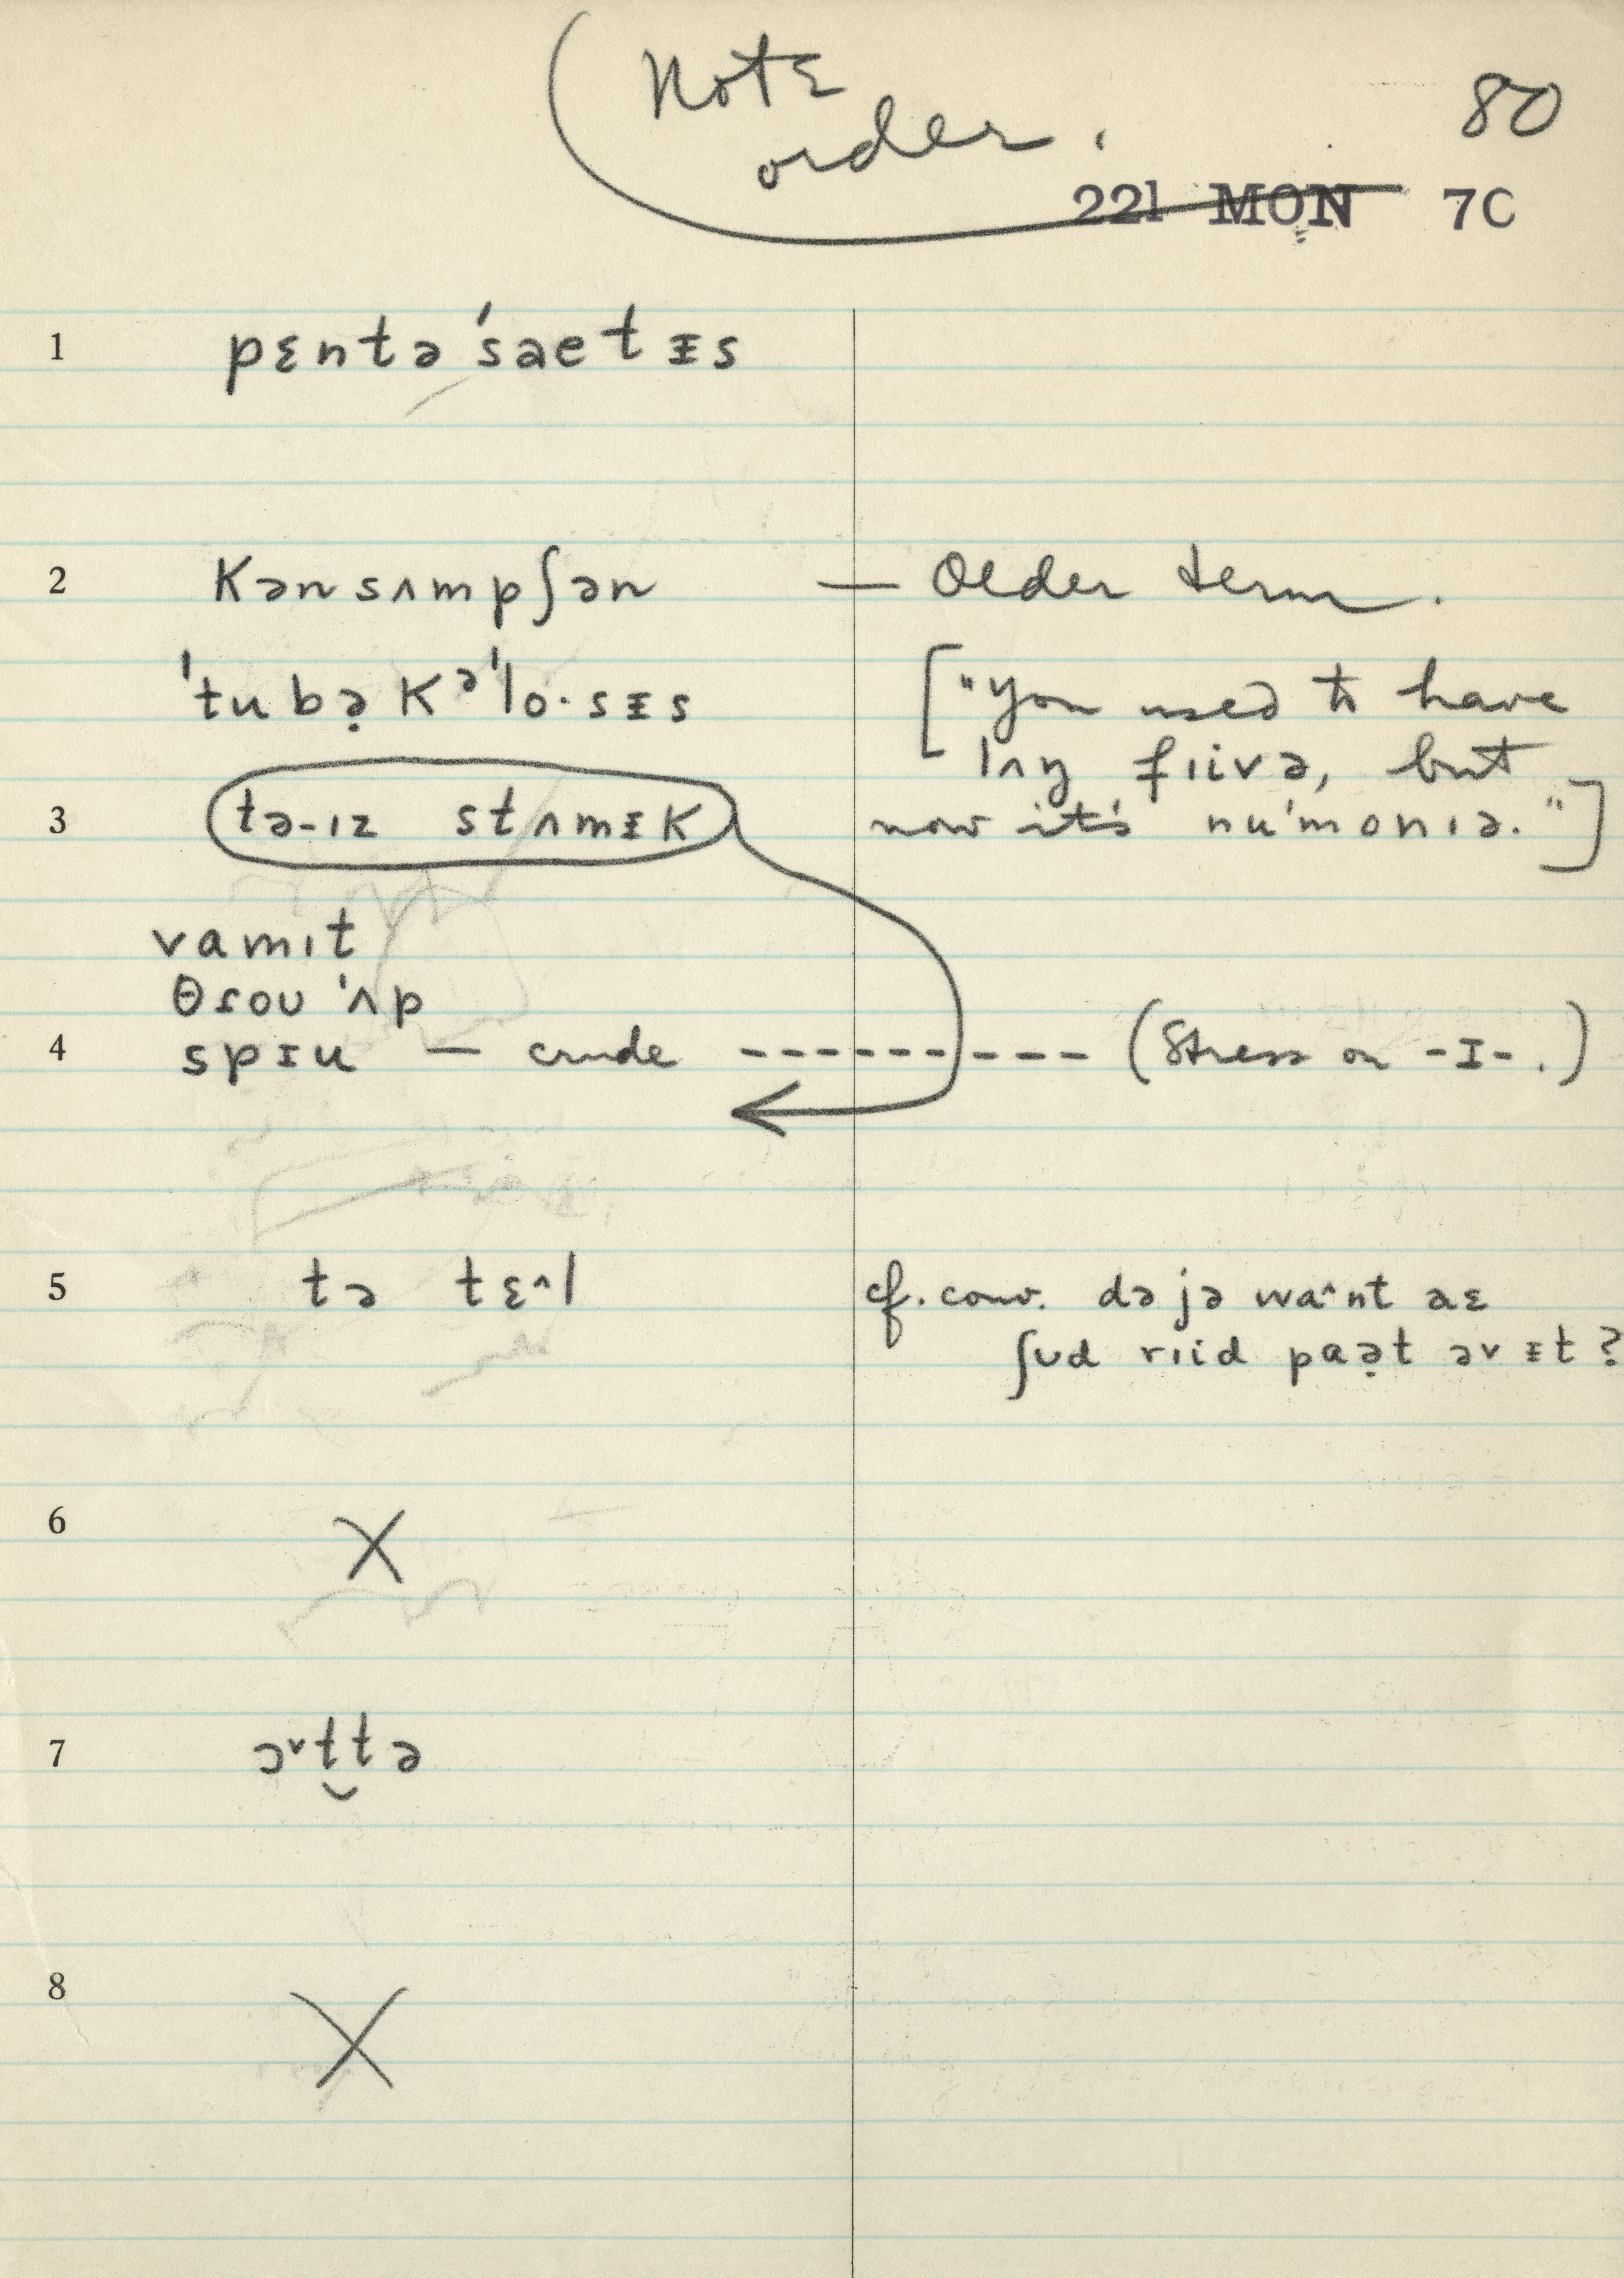 Note
order.
80
221 MON 7C
1 pɛntəˈsaetᵻs
2 Kənsʌmpʃən — Older term.
ˈtubə̣Kᵊˈlo·sᵻs ["You used to have
lʌŋ fıivə, but
3 tə-ız stʌmᵻK now it's nuˈmonıə."]
vamıt
θɾoʊ ˈʌp
4 spɪu — crude ---------- (Stress on -I-.)
5 tə tɛ^l cf. conv. dəjə wa^nt aɛ
ʃʊd rıid paə̣t əv ᵻt?
6 X
7 ɔ˅t̮tə
8 X